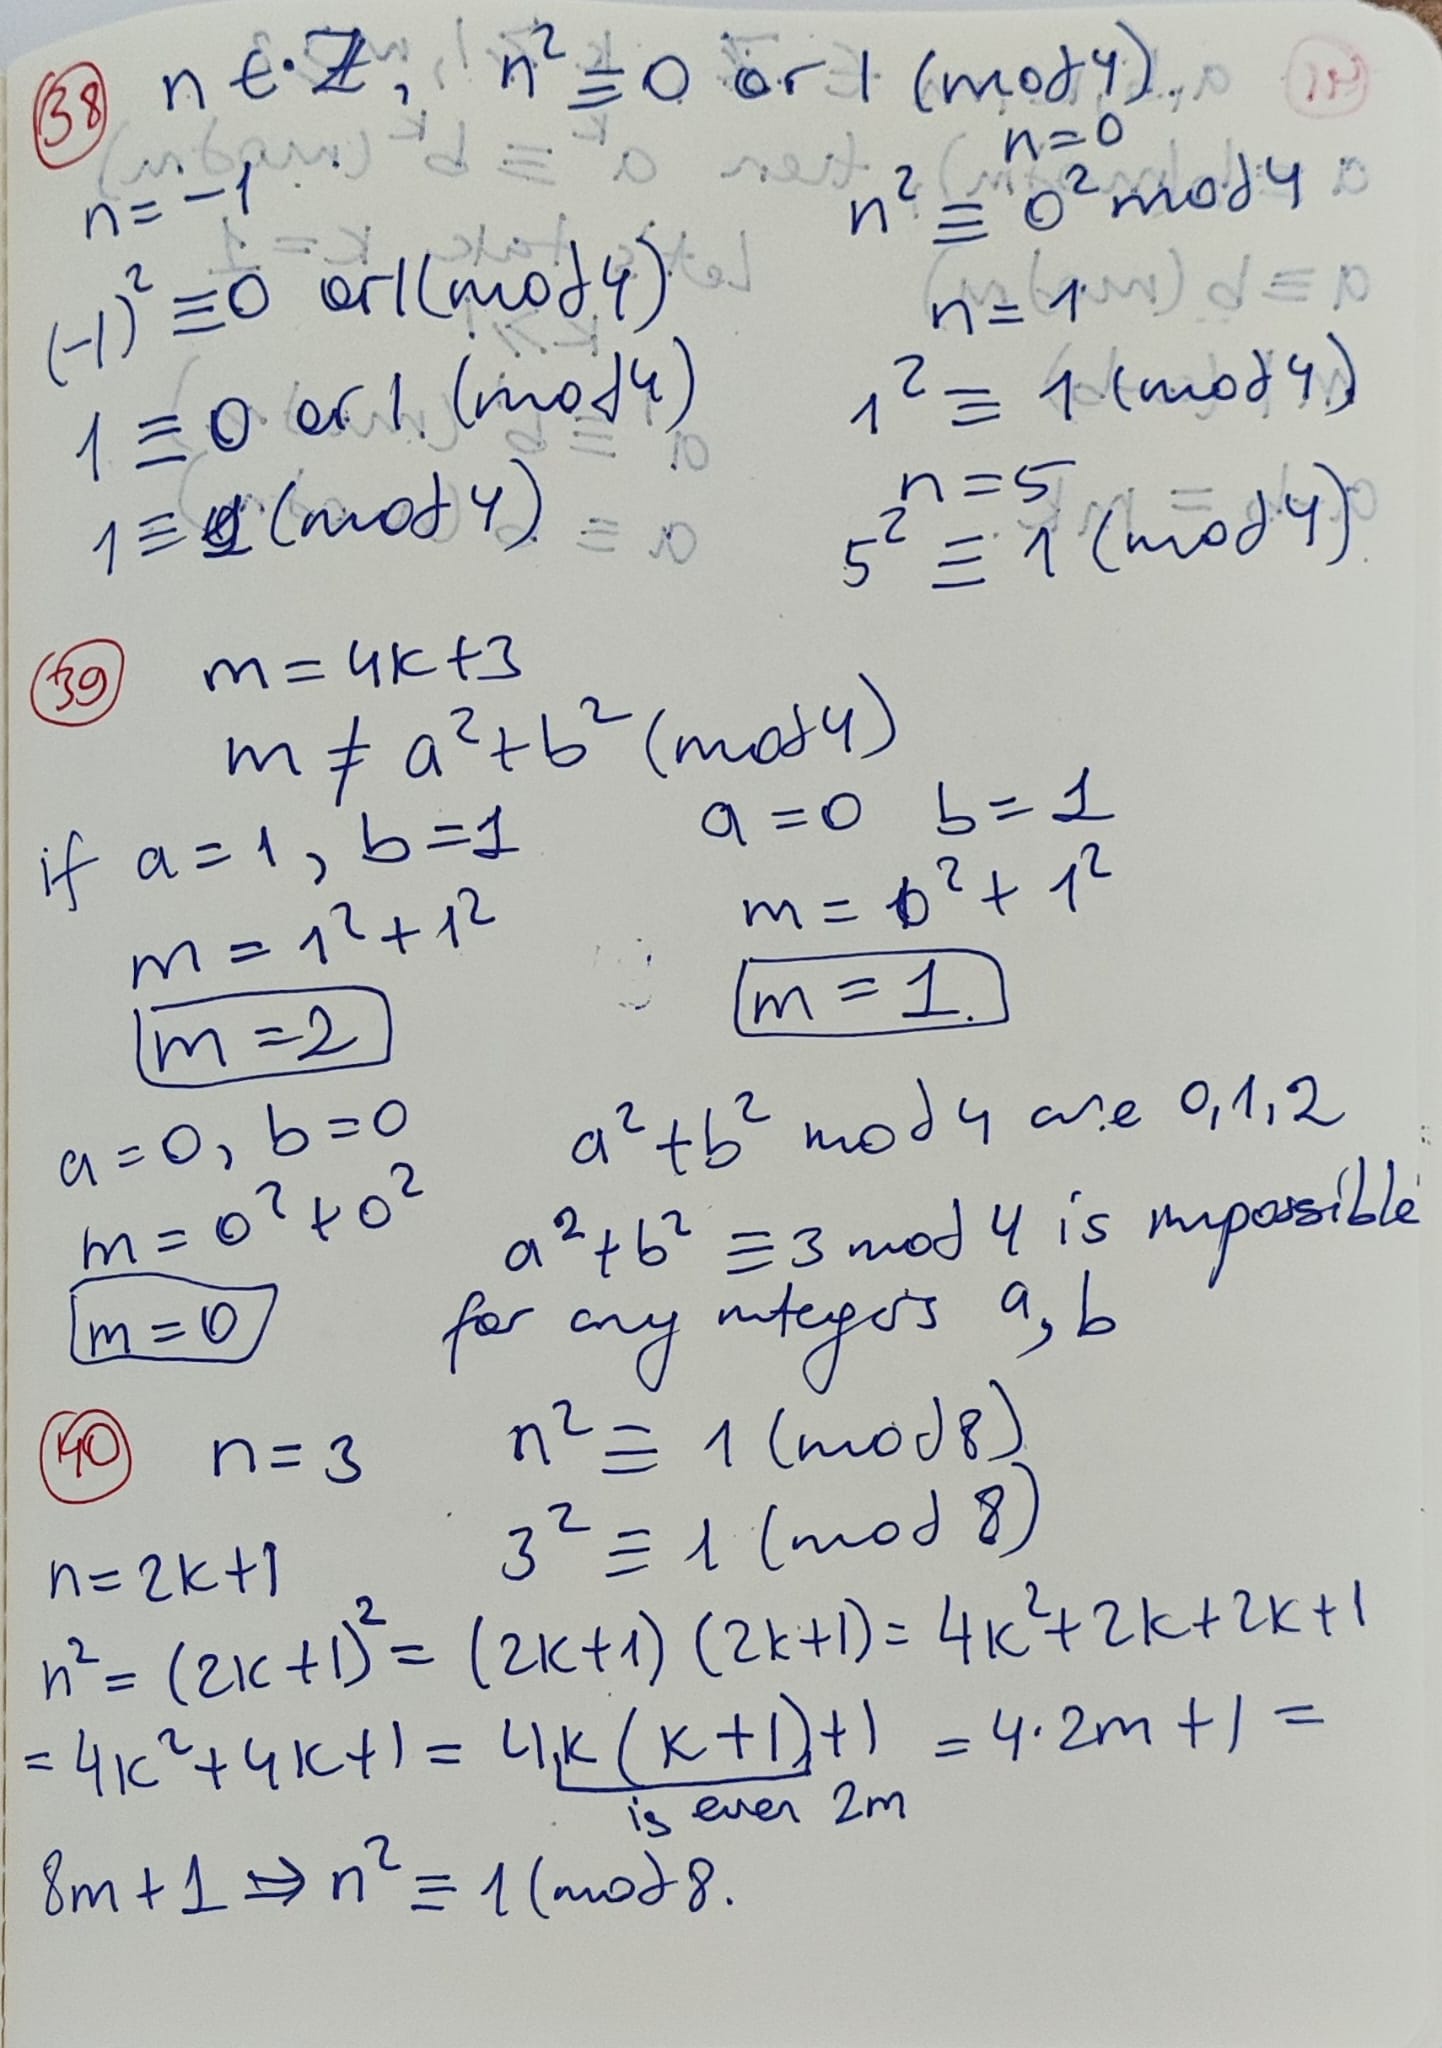 38 n ∈ ℤ, n² ≡ 0 or 1 (mod 4).
n = -1
(-1)² ≡ 0 or 1 (mod 4)
1 ≡ 0 or 1 (mod 4)
1 ≡ 1 (mod 4)
n = 0
n² ≡ 0² mod 4
n = 1
1² ≡ 1 (mod 4)
n = 5
5² ≡ 1 (mod 4)
39 m = 4k+3
m ≠ a² + b² (mod 4)
if a = 1, b = 1
m = 1² + 1²
m = 2
a = 0 b = 1
m = 0² + 1²
m = 1.
a = 0, b = 0
m = 0² + 0²
m = 0
a² + b² mod 4 are 0, 1, 2
a² + b² ≡ 3 mod 4 is impossible
for any integers a, b
40 n = 3 n² ≡ 1 (mod 8)
3² ≡ 1 (mod 8)
n = 2k+1
n² = (2k+1)² = (2k+1) (2k+1) = 4k² + 2k + 2k + 1
= 4k² + 4k + 1 = 4k(k+1) + 1 = 4·2m + 1 =
is even 2m
8m + 1 ⇒ n² ≡ 1 (mod 8.